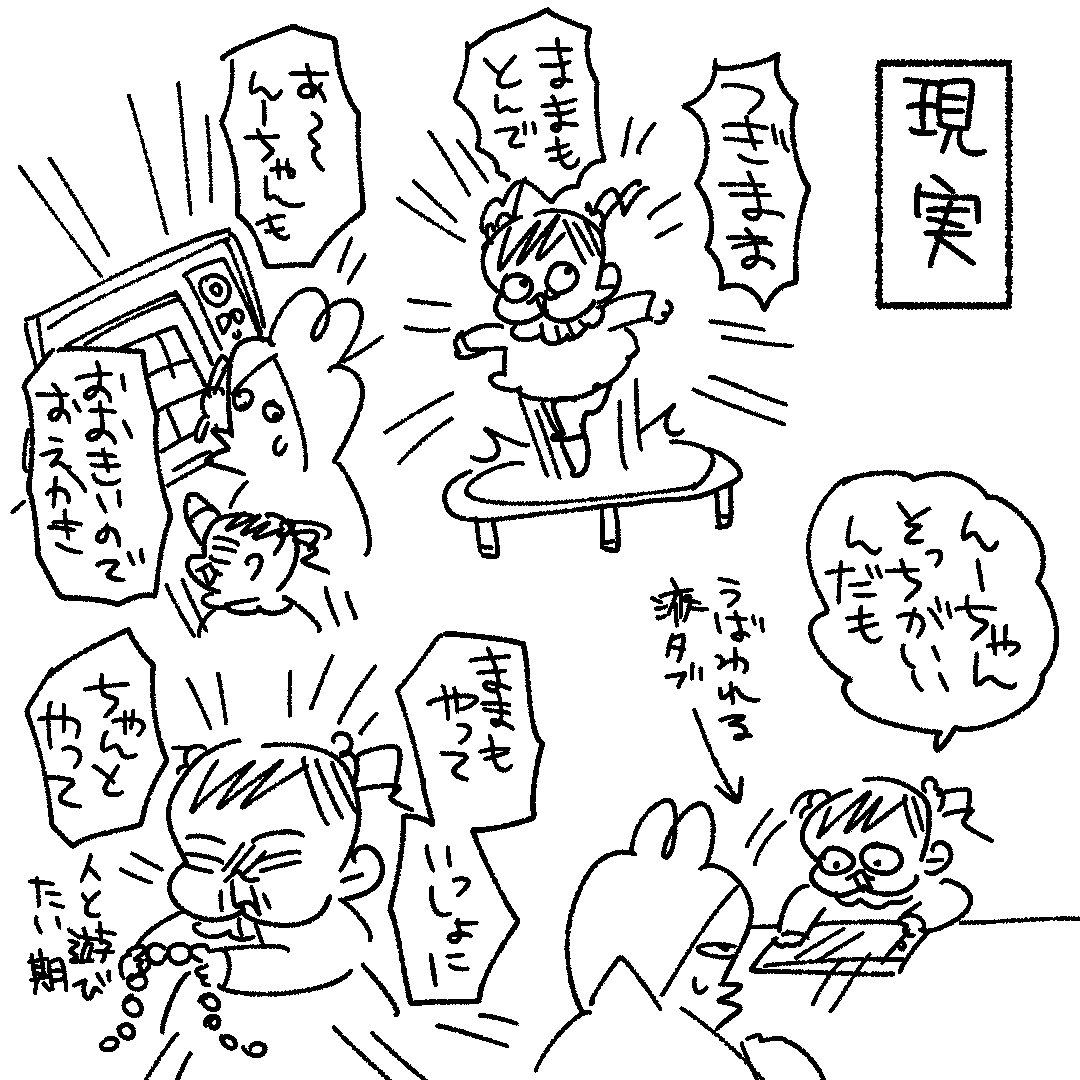 現実
つぎまま
ままも
とんで
あ〜
んーちゃんも
おおきいので
おえかき
んーちゃん
そっちがいい
んだも
うばわれる
液タブ
ままも
やって
いっしょに
ちゃんと
やって
人と遊び
たい期